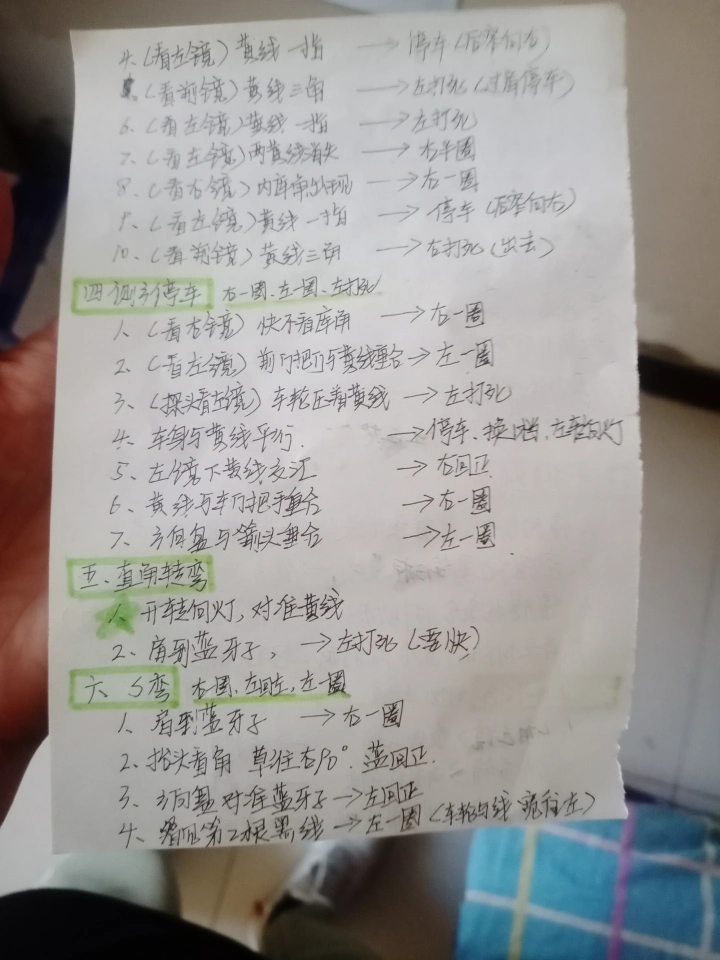 4.(看左镜)黄线一指 → 停车(后窄向右)
5.(看前镜)黄线三角 → 左打死(过肩停车)
6.(看左镜)黄线一指 → 左打死
7.(看左镜)两黄线消失 → 右半圈
8.(看右镜)内库角出现 → 右一圈
9.(看左镜)黄线一指 → 停车(后窄向右)
10.(看前镜)黄线三角 → 右打死(出去)
四侧方停车 右一圈、左一圈、左打死
1、(看右镜)快不看库角 → 右一圈
2、(看左镜)前门把门与黄线重合 → 左一圈
3、(探头看左镜)车轮压着黄线 → 左打死
4、车身与黄线平行. → 停车、换1档,左转向灯
5、左镜下黄线交汇 → 右回正
6、黄线与车门把手重合 → 右一圈
7、方向盘与箭头重合 → 左一圈.
五、直角转弯
1、开转向灯,对准黄线
2、肩到蓝牙子, → 左打死(要快)
六、S弯 右一圈、左回左,左一圈
1、肩到蓝牙子 → 右一圈
2、抬头看角 草往右90°.蓝回正.
3、方向盘对准蓝牙子 → 左回正
4、第2根黑线 → 左一圈(车轮与线 往左)